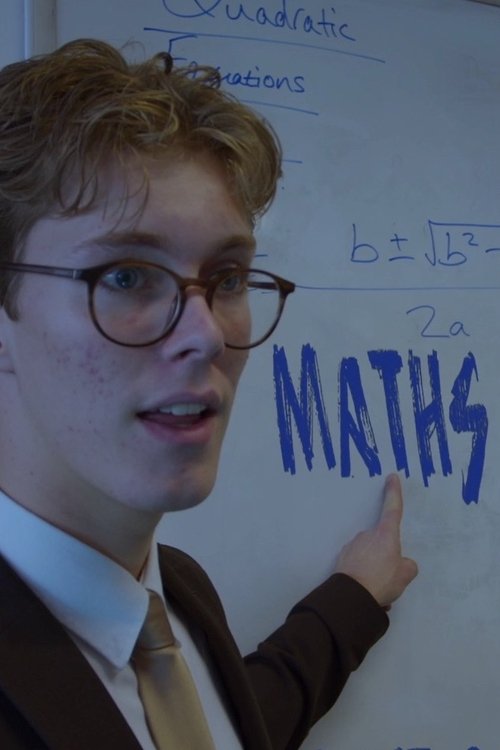 Quadratic
Equations
b ± √b² -
2a
MATHS